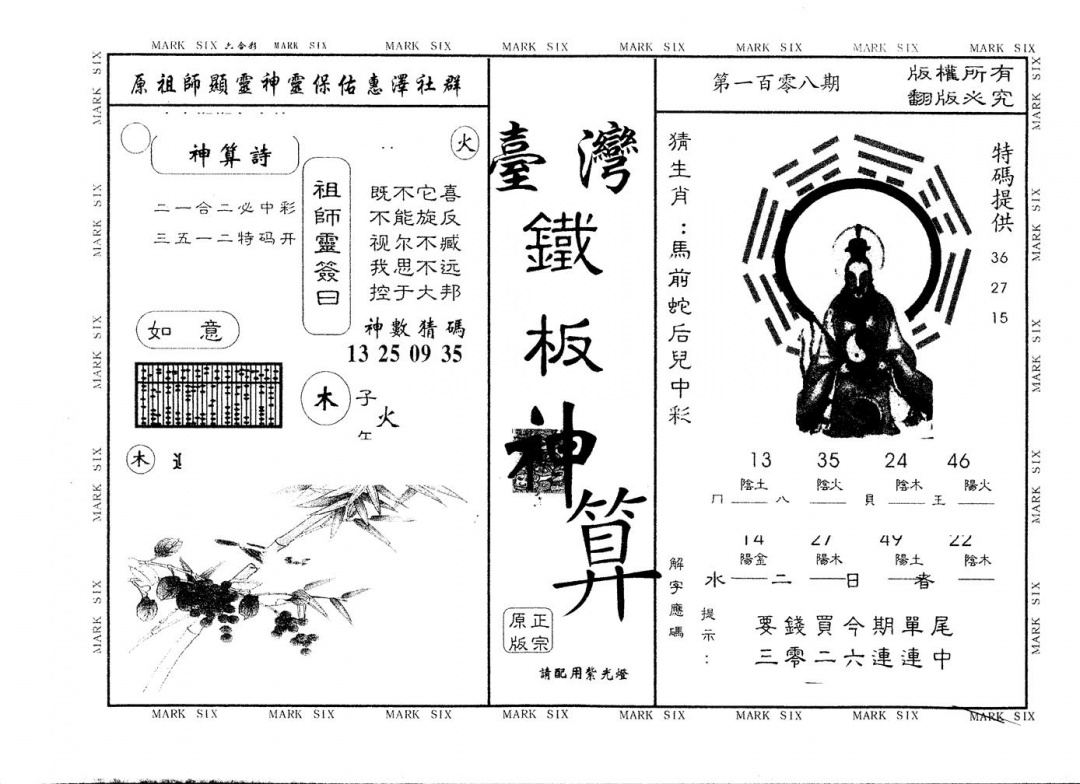 MARK SIX 六合彩 MARK SIX MARK SIX MARK SIX MARK SIX MARK SIX MARK SIX MARK SIX
原祖師顯靈神靈保佑惠澤社群
神算詩
火
二一合二必中彩
三五一二特码开
祖師靈簽曰
既不它喜
不能旋反
视尔不臧
我思不远
控于大邦
神數猜碼
13 25 09 35
如意
木
子
火
木
臺灣
鐵
板
神
算
正宗
原版
請配用紫光燈
第一百零八期
版權所有
翻版必究
猜生肖：馬前蛇后兒中彩
特碼提供
36
27
15
13 35 24 46
陰土 陰火 陰木 陽火
八 貝 王
14 27 49 22
陽金 陽木 陽土 陰木
水 二 日 春
解字應碼
提示：
要錢買今期單尾
三零二六連連中
MARK SIX MARK SIX MARK SIX MARK SIX MARK SIX MARK SIX MARK SIX MARK SIX
MARK SIX MARK SIX MARK SIX MARK SIX MARK SIX
MARK SIX MARK SIX MARK SIX MARK SIX MARK SIX